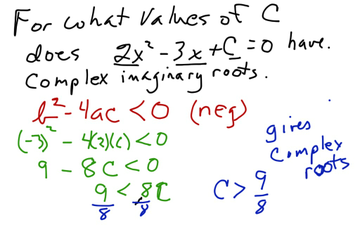 For what values of C
does 2x² - 3x + C = 0 have.
Complex imaginary roots.
b² - 4ac < 0 (neg)
(-3)² - 4(2)(c) < 0
9 - 8C < 0
9/8 < 8/8 C
C > 9/8
gives
complex
roots